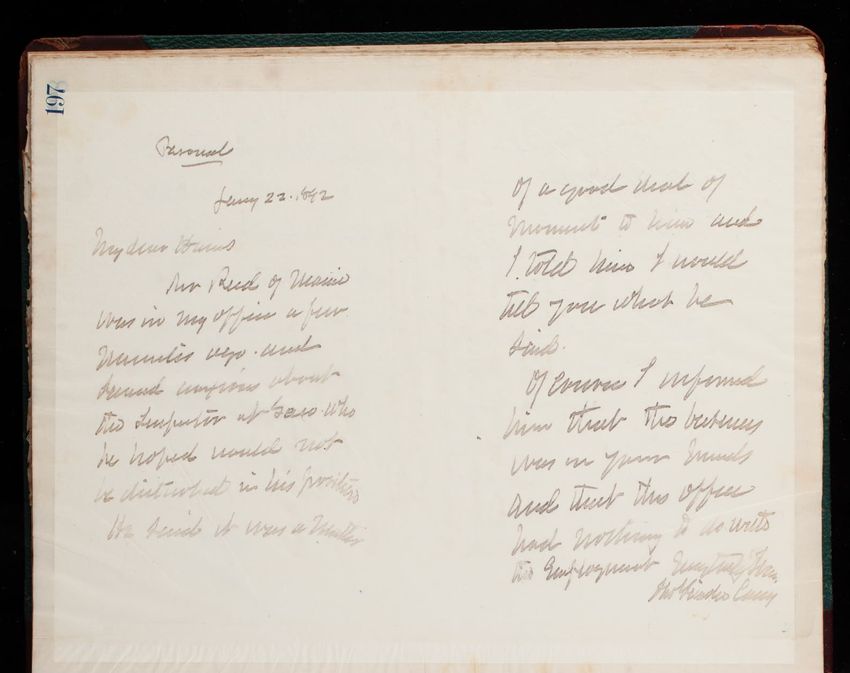 197
Personal
Jany 22. 1892
My dear Hains
Mr Reed of Maine
was in my office a few
minutes ago. and
seemed anxious about
the Inspector at Saco. who
he hoped would not
be disturbed in his position
He said it was a matter
of a good deal of
moment to him and
I told him I would
tell you what he
said.
Of course I informed
him that the business
was in your hands
and that this office
had nothing to do with
the employment Very truly Yours
Thos Lincoln Casey